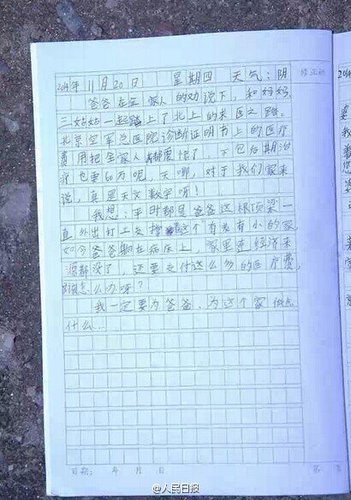 2014年11月20日 星期四 天气:阴
爸爸在全家人的劝说下,和妈妈、
二姑姑一起踏上了北上的求医之路。
北京空军总医院诊断证明书上的医疗
费用把全家人都惊呆了,
也要60万呢,天哪,对于我们家来
说,真是天文数字呀!
我想:平时都是爸爸这根顶梁一
直外出打工支撑着这个有老有小的家
如今爸爸躺在病床上,家里连经济来
源都没了,还要支付这么多的医疗费,
怎么办呀?
我一定要为爸爸、为这个家做点
什么…
日期: 年 月 日
@人民日报